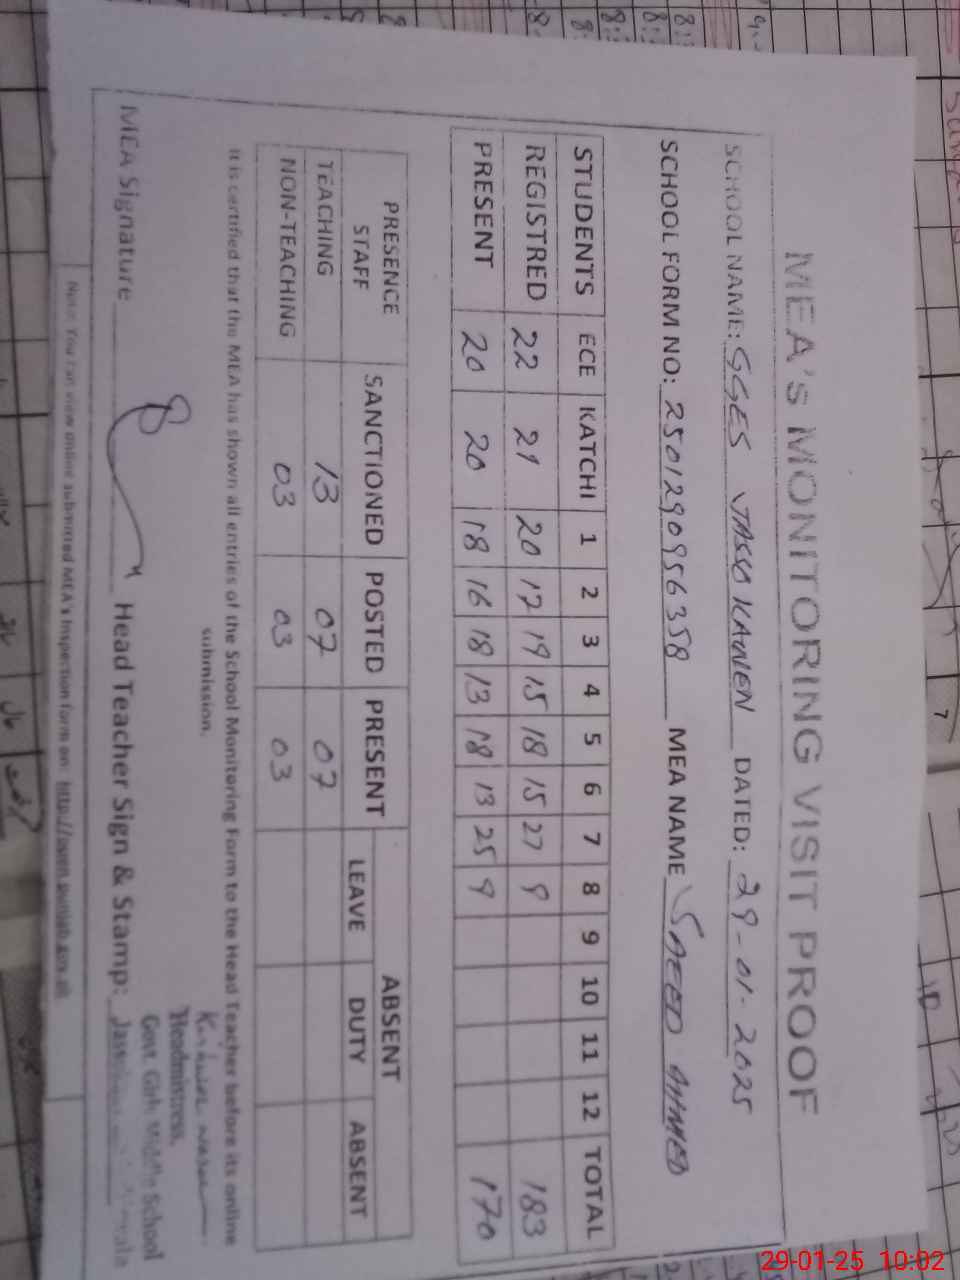 MEA'S MONITORING VISIT PROOF
SCHOOL NAME: GGES JASSOKAWEN DATED: 29-01-2025
SCHOOL FORM NO: 2501290956358 MEA NAME SAEED AHMED
STUDENTS ECE KATCHI 1 2 3 4 5 6 7 8 9 10 11 12 TOTAL
REGISTRED 22 21 20 17 19 15 18 15 27 9 183
PRESENT 20 20 18 16 18 13 18 13 25 9 170
PRESENCE STAFF SANCTIONED POSTED PRESENT ABSENT
LEAVE DUTY ABSENT
TEACHING 13 07 07
NON-TEACHING 03 03 03
It is certified that the MEA has shown all entries of the School Monitoring Form to the Head Teacher before its online
submission.
MEA Signature Head Teacher Sign & Stamp:
Headmistress,
Govt. Girls Middle School
Note: You can view online submitted MEA's Inspection form on:
29-01-25 10:02